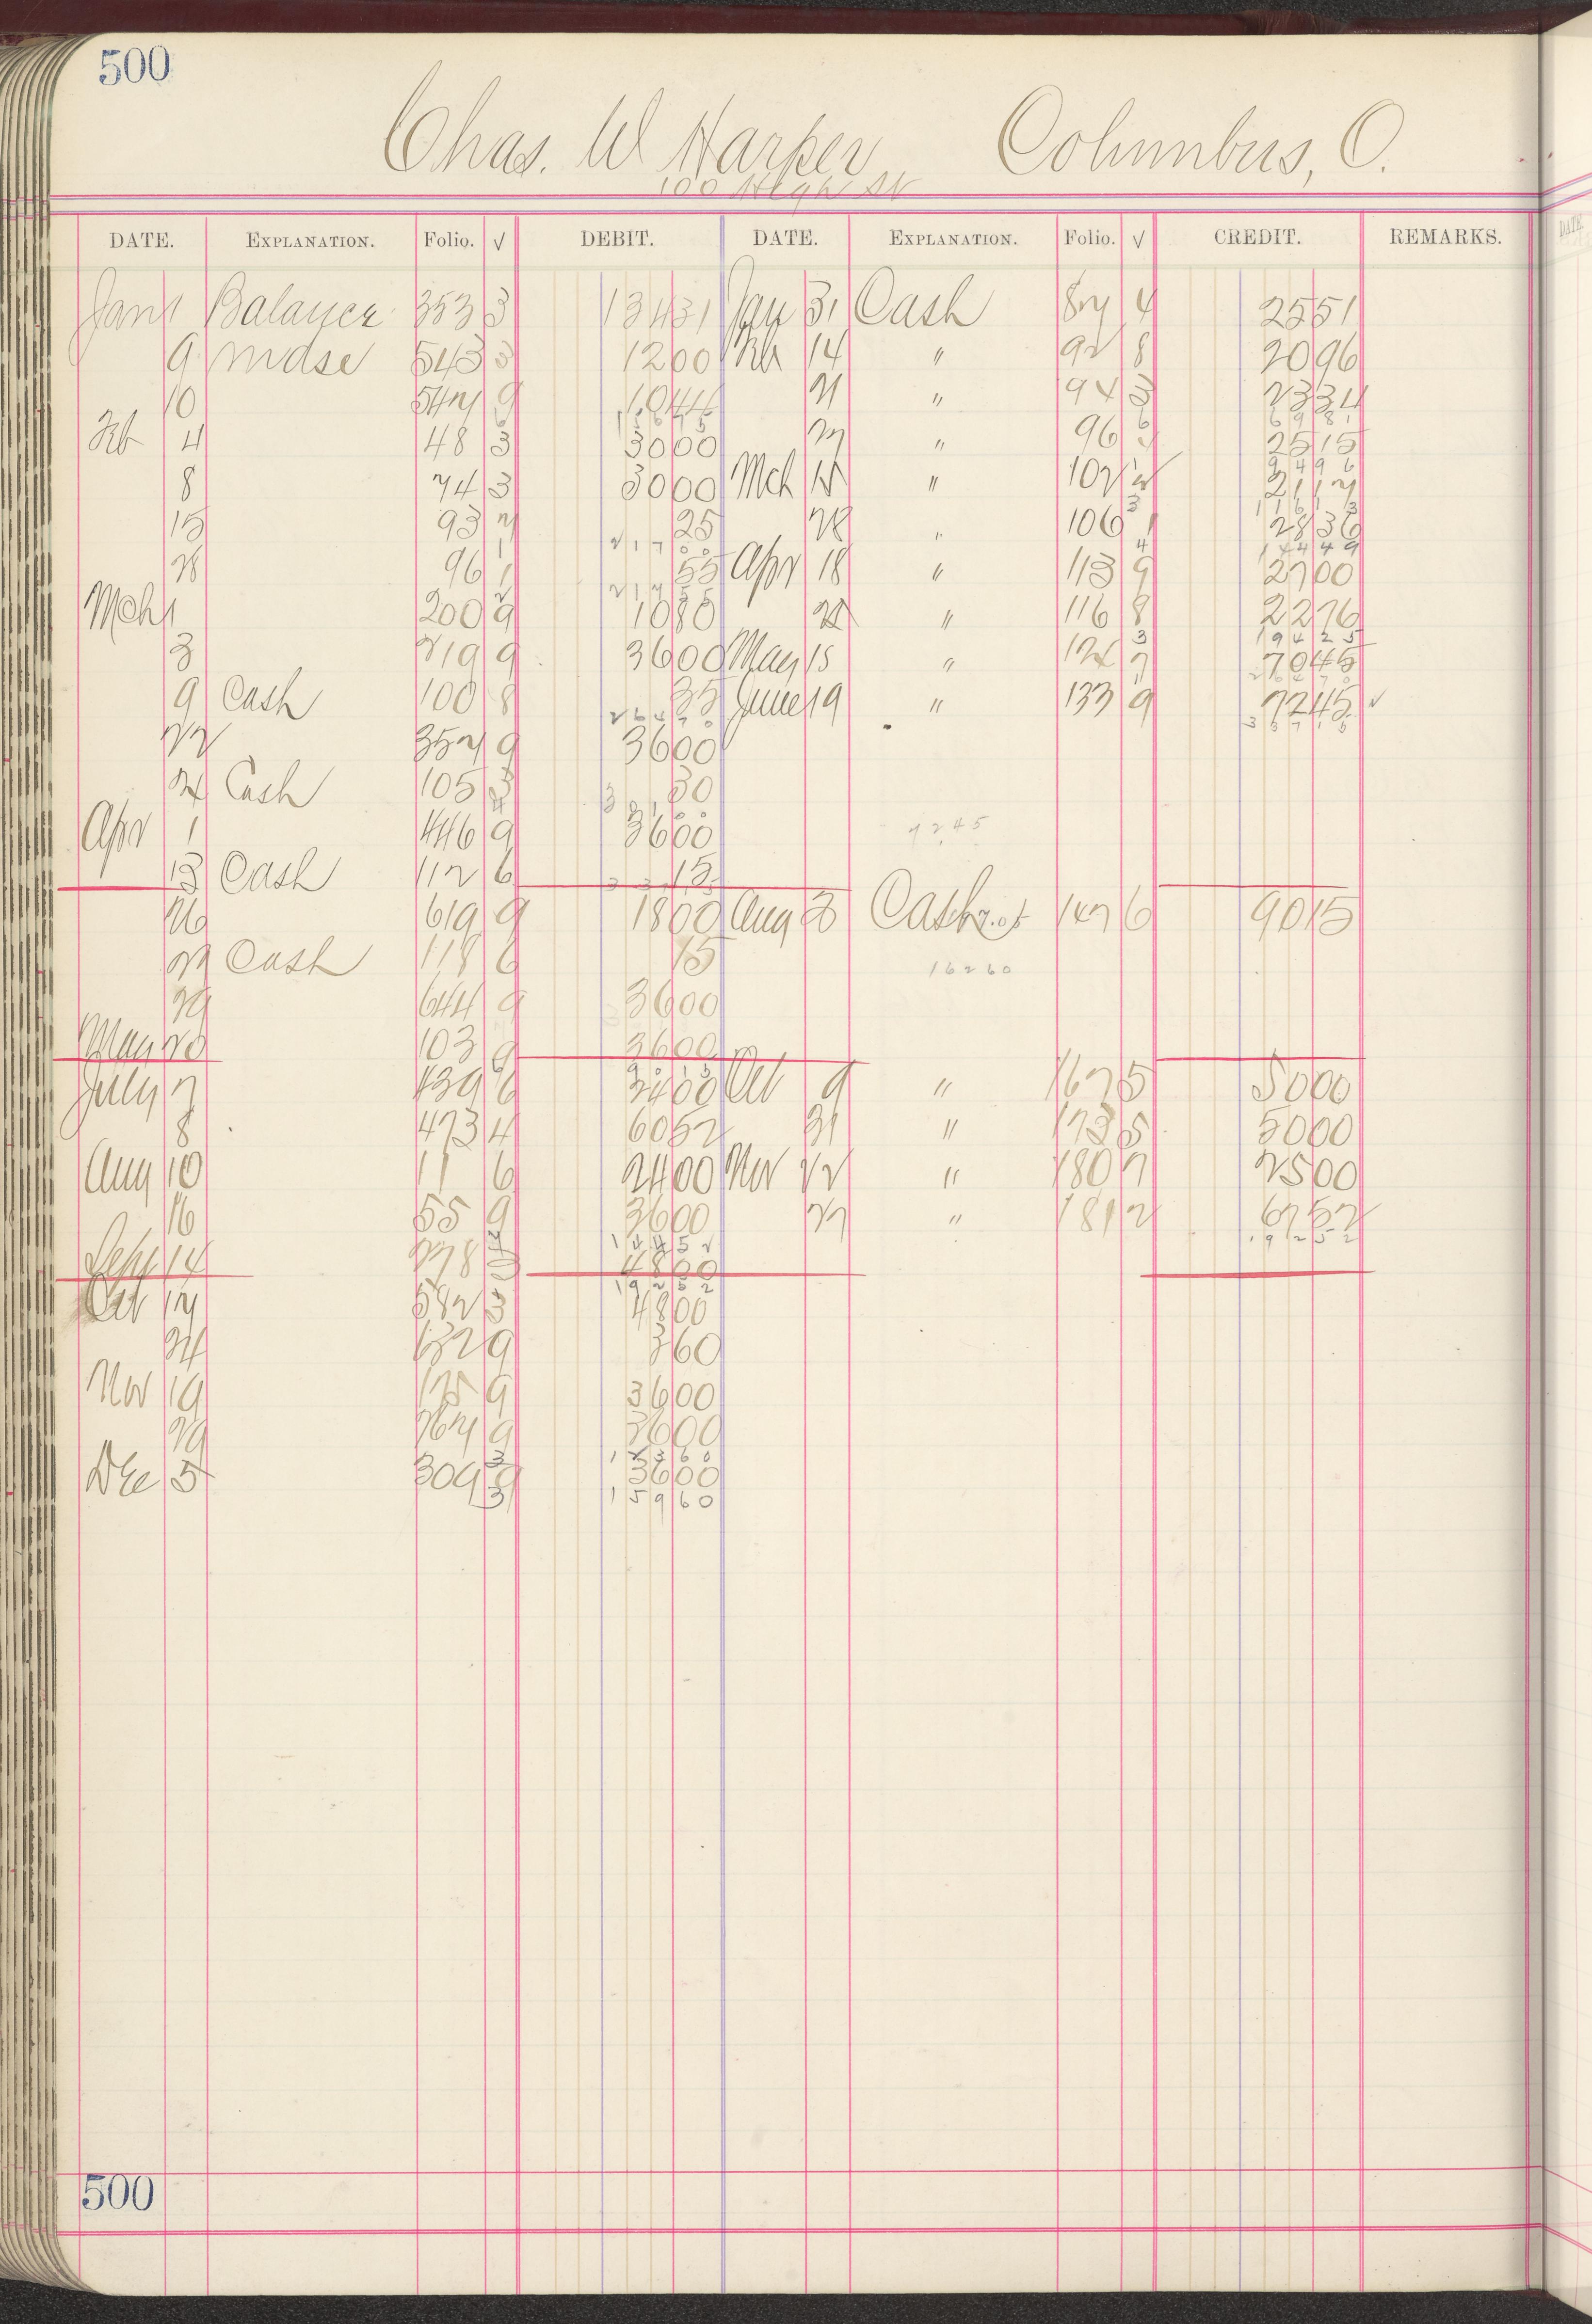 500
Chas. W Harper Columbus, O.
100 High St
DATE. EXPLANATION. Folio. √ DEBIT. DATE. EXPLANATION. Folio. √ CREDIT. REMARKS.
Jan 1 Balance 353 3 13431 Jan 31 Cash 87 4 2551
9 Mdse 543 3 1200 Feb 14 " 92 8 2096
10 547 9 1044 21 " 94 3 2334
6981
Feb 4 48 3 3000 27 " 96 2515
9496
8 74 3 3000 Mch 15 " 102 2 2117
11613
15 93 7 25 28 " 106 1 2836
14449
28 96 1 55 Apr 18 " 113 9 2700
Mch 1 200 9 1080 28 " 116 8 2276
19425
3 219 9 3600 May 15 " 124 7 7045
9 Cash 100 8 35 June 19 " 133 9 7245
22 357 9 3600
24 Cash 105 3 30
Apr 1 446 9 3600 7245
13 Cash 112 6 15
26 619 9 1800 Aug 3 Cash 147 6 9015
27 Cash 118 6 15 16260
29 644 9 3600
May 20 103 9 3600
July 7 439 6 2400 Oct 9 " 167 5 5000
8 473 4 6052 31 " 173 5 5000
Aug 10 11 6 2400 Nov 22 " 180 7 2500
16 55 9 3600 27 " 181 2 6752
14452 19252
Sept 14 278 4800
19252
Oct 17 582 3 4800
24 632 9 360
Nov 19 175 9 3600
29 267 9 3600
12360
Dec 5 309 9 3600
15960
500